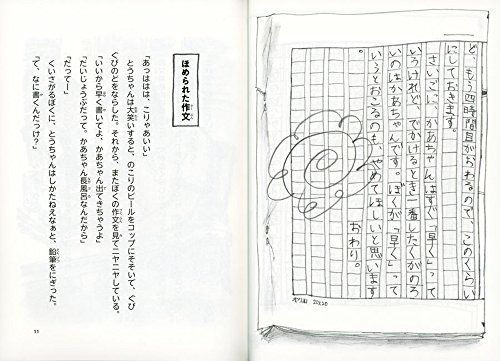 ど、もう四時間目がおわるので、このくらい
にしておきます。
さいごに、かあちゃんはすぐ「早く」って
いうけれど、でかけるとき一番したくがのろ
いのはかあちゃんです。ぼくが「早く」って
いうとおこるのも、やめてほしいと思います
おわり。
ほめられた作文
「あっははは、こりゃあいい」
とうちゃんは大笑いすると、のこりのビールをコップにそそいで、ぐび
ぐびのどをならした。それから、またぼくの作文を見てニヤニヤしている。
「いいから早く書いてよ、かあちゃん出てきちゃうよ」
「だいじょうぶだって。かあちゃん長風呂なんだから」
「だってー」
くいさがるぼくに、とうちゃんはしかたねえなぁと、鉛筆をにぎった。
「で、なに書くんだっけ？」
11